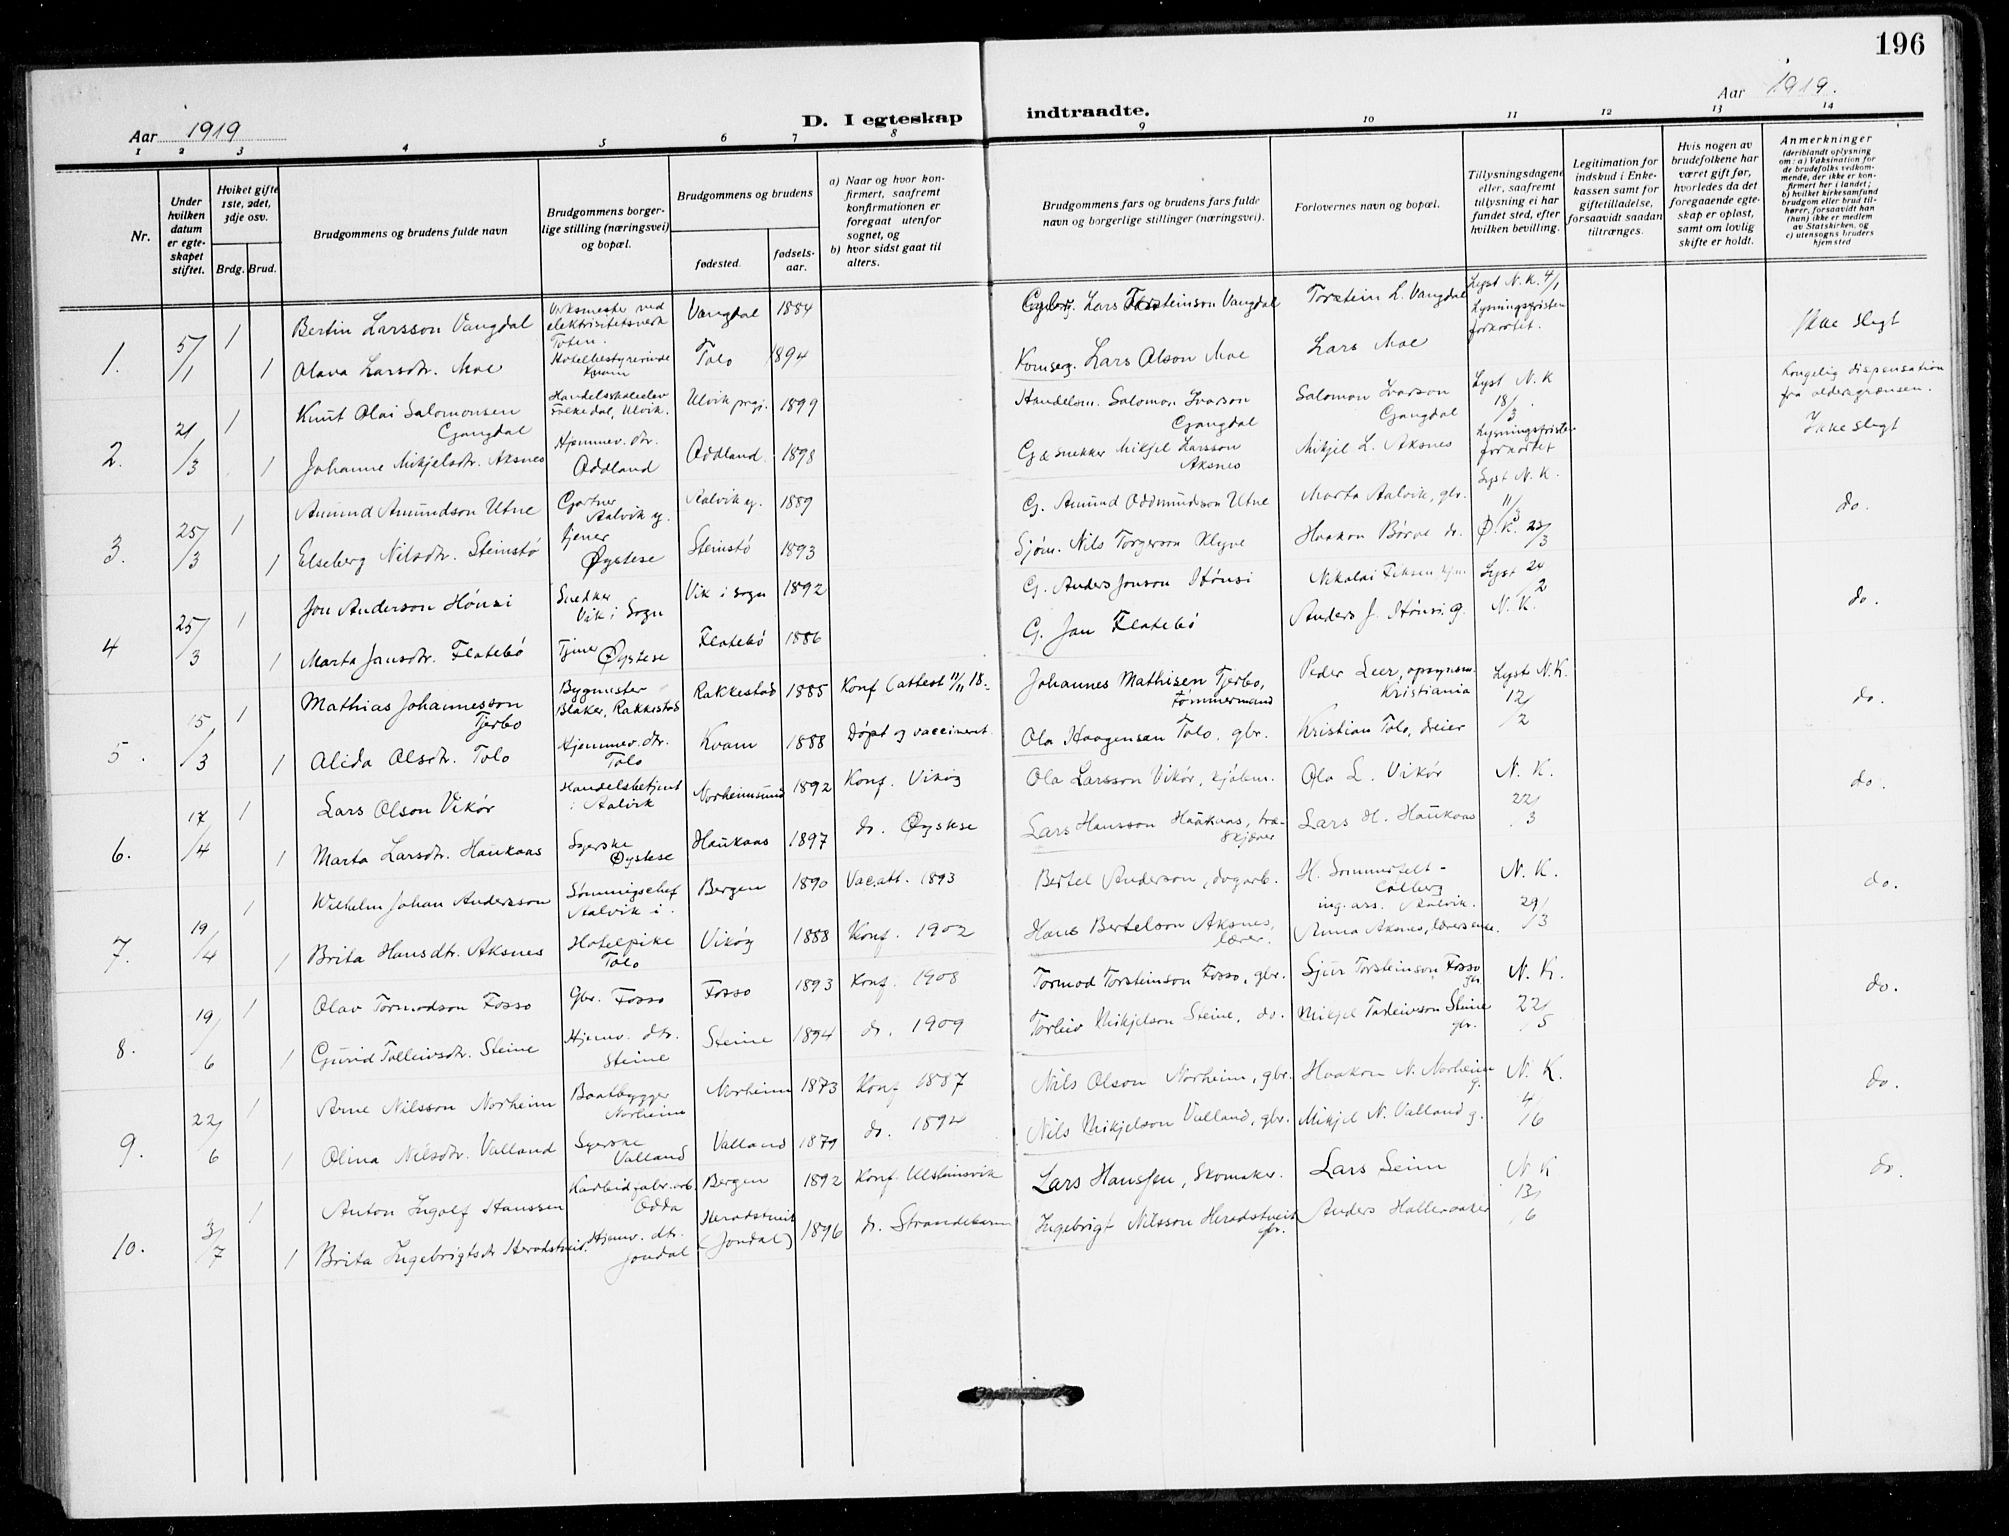 196
Aar 1919
D. I egteskap
indtraadte.
Aar 1919.
1 2 3 4 5 6 7 8 9 10 11 12 13 14
Nr.
Under hvilken datum er egteskapet stiftet.
Hvilket gifte 1ste, 2det, 3dje osv.
Brdg. Brud.
Brudgommens og brudens fulde navn
Brudgommens borgerlige stilling (næringsvei) og bopæl.
Brudgommens og brudens
fødested. fødselsaar.
a) Naar og hvor konfirmert, saafremt konfirmationen er foregaat utenfor sognet, og
b) hvor sidst gaat til alters.
Brudgommens fars og brudens fars fulde navn og borgerlige stillinger (næringsvei).
Forlovernes navn og bopæl.
Tillysningsdagene eller, saafremt tillysning ei har fundet sted, efter hvilken bevilling.
Legitimation for indskud i Enkekassen samt for giftetilladelse, forsaavidt saadan tiltrænges.
Hvis nogen av brudefolkene har været gift før, hvorledes da det foregaaende egteskap er opløst, samt om lovlig skifte er holdt.
Anmerkninger
(deriblandt oplysning om: a) Vaksination for de brudefolks vedkommende, der ikke er konfirmert her i landet; b) hvilket kirkesamfund brudgom eller brud tilhører, forsaavidt han (hun) ikke er medlem av Statskirken, og c) utensogns bruders hjemsted
1. 5/1 1 Bertin Larsson Vangdal Verksmester ved elektrisitetsverk Toten. Vangdal 1884 Lars Torsteinson Vangdal Torstein L. Vangdal Lyst N. K. 4/1 Lysningsfristen forkortet. Ikke slegt
1 Olava Larsdtr. Moe Hotelbestyrerinde Kvam Tolo 1894 Lars Olson Moe Lars Moe
2. 21/3 1 Knut Olai Salomonsen Gjangdal Handelsskoleelev Ulvik. Ulvik prgj. 1899 Handelsm. Salomon Ivarson Gjangdal Salomon Ivarson Gjangdal Lyst N. K. 18/3. Lysningsfristen forkortet Kongelig dispensation fra aldersgrænsen. Ikke slegt
1 Johanne Mikjelsdtr. Aksnes Hjemmev. dtr. Oddland Oddland. 1898 G. & snekker Mikjel Larsson Aksnes Mikjel L. Aksnes
3. 25/3 1 Amund Amundson Utne Gartner Aalvik g. Aalvik g. 1889 G. Amund Oddmundson Utne Marta Aalvik, gbr. Lyst N. K. 11/3 do.
1 Elseberg Nilsdtr. Steinstø tjener Øystese Steinstø 1893 Sjøm. Nils Torgerson Klyve Haakon Børve do. Ø. K. 23/3
4 25/3 1 Jon Anderson Hønsi Snedker Vik i Sogn Vik i Sogn 1892 G. Anders Jonson Hønsi Nikolai Fiksen Lyst 24/2 N. K. do.
1 Marta Jansdtr. Flatebø Tjener Øystese Flatebø 1886 G. Jan Flatebø Anders J. Hønsi g.
5. 15/3 1 Mathias Johannesson Tjerbo Bygmester Blaker, Rakkestad Rakkestad 1885 Konf (attest 11/11 18. Johannes Mathisen Tjerbo, Tømmermand Peder Leer, opsynsm. Kristiania Lyst N. K. 12/2 do.
1 Alida Olsdtr. Tolo Hjemmev. dtr. Tolo Kvam 1888 Døpt og vaccineret. Ola Haagensen Tolo. gbr. Kristian Tolo, dreier
6. 17/4 1 Lars Olson Vikør Handelsbetjent i Aalvik Norheimsund 1892 Konf. Vikøy Ola Larsson Vikør, kjøbm. Ola L. Vikør N. K. 22/3 do.
1 Marta Larsdtr. Haukaas Syerske Øystese Haukaas 1897 do. Øystese Lars Hansson Haukaas, træskjærer Lars H. Haukaas
7. 19/4 1 Wilhelm Johan Anderson Aalvik i. Bergen 1890 Vac.att. 1893 Bertel Anderson, dagarb. H. Sommerfelt - Colberg ing. ass. Aalvik. N. K. 29/3 do.
1 Brita Hansdtr. Aksnes Hotelpike Tolo Vikøy 1888 Konf. 1902 Hans Bertelson Aksnes, lærer. Anna Aksnes, lærerenke.
8. 19/6 1 Olav Tormodson Fosso Gbr. Fosso Fosso 1893 Konf. 1908 Tormod Torsteinson Fosso, gbr. Sjur Torsteinson Fosso gbr N. K. 22/5 do.
1 Gjurid Tolleivsdtr. Steine Hjemv. dtr. Steine Steine 1894 do. 1909 Torleiv Mikjelson Steine, do. Mikjel Torleivson Steine gbr.
9. 22/6 1 Arne Nilsson Norheim Baatbygger Norheim Norheim 1873 Konf 1887 Nils Olson Norheim, gbr. Haakon N. Norheim g. N. K. 4/6 do.
1 Olina Nilsdtr. Valland Syerske Valland Valland 1879 do. 1894 Nils Mikjelson Valland, gbr. Mikjel N. Valland g.
10. 3/7 1 Anton Ingolf Hanssen Karbidfabr.arb. Odda Bergen 1892 Konf. Ulsteinsvik Lars Hanssen, Skomaker. Lars Seim N. K 13/6 do.
1 Brita Ingebrigtsdtr Heradstveit. Hjemv. dtr. Jondal Heradstveit (Jondal) 1896 do. Strandebarm Ingebrigt Nilsson Heradstveit gbr. Anders Halleraaker